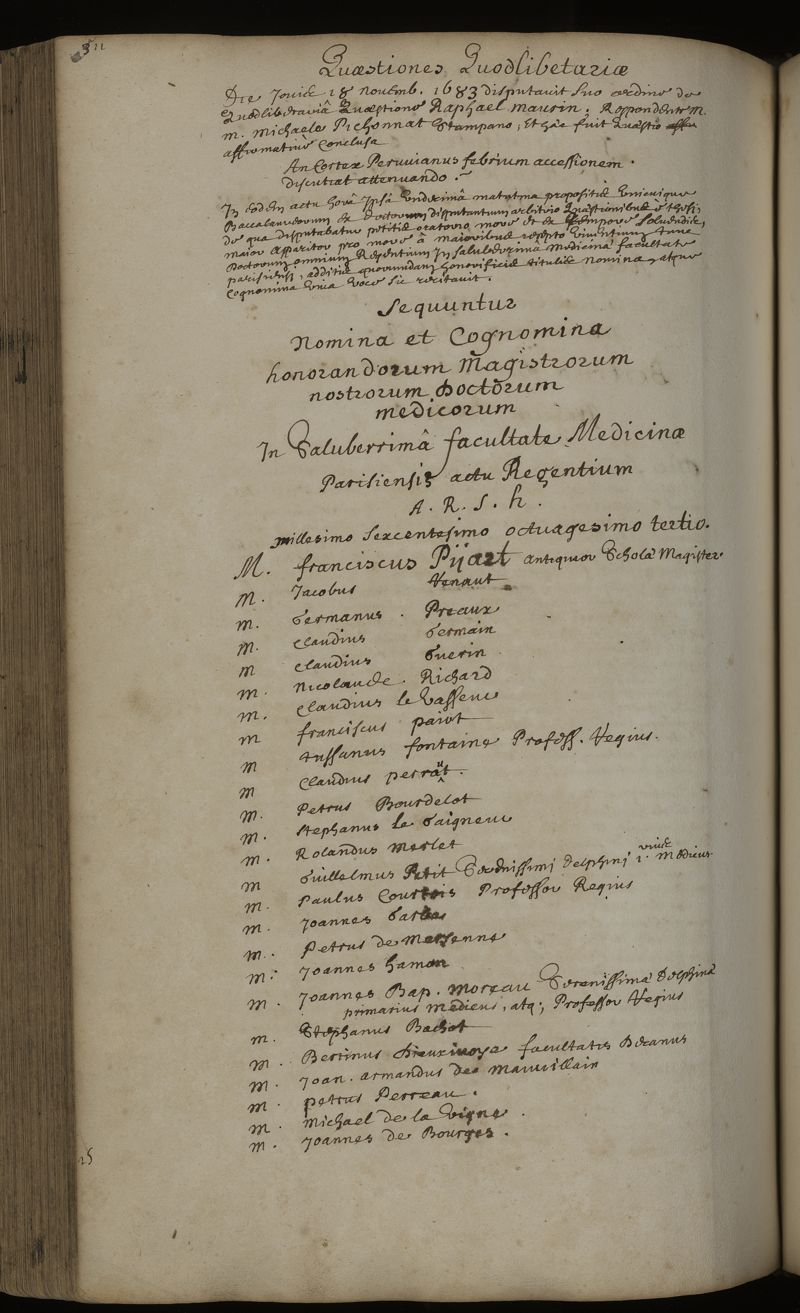 511
Quæstiones Quodlibetariæ
Die Jovis 18 novemb. 1683 disputavit suo ordine de
Quodlibetariâ Quæstione Raphael maurin. Respondente m.
m. michaele Pichonnat Stampano, Et hæc fuit Quæstio
affirmativè conclusa
An Cortex Peruvianus febrium accessionem.
discutiat attenuando.
In eodem actu horâ Ipsâ Undecimâ matutina propositis Unicuique
Baccalaureorum et Doctorum disputantium arbitrio Quæstionibus è thesi,
de qua disputabatur petitis oratorio more et ex tempore soluendis,
maior apparitor pro more â maioribus recepto Viventium tunc
Doctorum omnium Regentium In saluberrimâ medicinæ facultate
parisiensi, additis quorumdam honorificis titulis nomina, atque
cognomina Viva Voce sic recitavit.
Sequuntur
Nomina et Cognomina
honorandorum Magistrorum
nostrorum Doctorum
medicorum
In Saluberrimâ facultate Medicinæ
Parisiensis actu Regentium
A. R. S. h.
millesimo sexcentesimo octuagesimo tertio.
M. franciscus Pijart antiquior Scholæ Magister
m. Jacobus Renaut
m. Germanus. Preaux
m. Claudius Germain
m Claudius Guerin
m. Nicolaus. Richard
m. Claudius le Vasseur
m franciscus paiot
m tussanus fontaine Profess. Regius.
m Claudius perraut.
m. Petrus Bourdelot
m. Stephanus le Gaigneur
m. Rolandus merlet
m Guillelmus Petit Serenissimi Delphini medicus
m. Paulus Courtois Professor Regius
m. Joannes
m. Petrus de mersenne
m. Joannes hamon
m. Joannes Bap. moreau Serenissimæ Delphinæ
primarius medicus, atq; Professor Regius
m. Stephanus Bachot
m. Bertinus Dieuxivoye facultatis Decanus
m. Joan. armandus de mauvillain
m. petrus Perreau.
m. michael de la Vigne.
m. Joannes de Bourges.